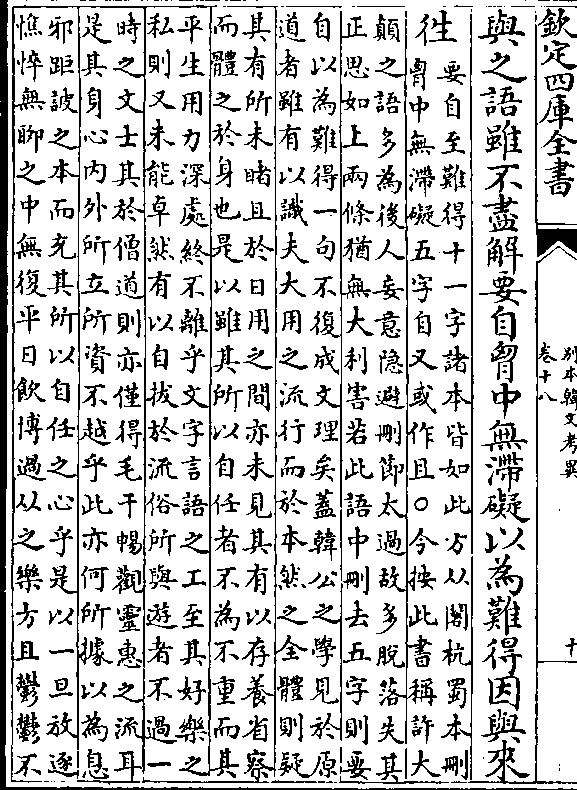 欽定四庫全書
別本韓文考異
卷十八
十
與之語雖不盡解要自胷中無滯礙以為難得因與來
往
要自至難得十一字諸本皆如此方从閣杭蜀本刪
胷中無滯礙五字自又或作且〇今按此書稱許大
顛之語多為後人妄意隱避刪節太過故多脫落失其
正思如上兩條猶無大利害若此語中刪去五字則要
自以為難得一句不復成文理矣蓋韓公之學見於原
道者雖有以識夫大用之流行而於本然之全體則疑
其有所未睹且於日用之間亦未見其有以存養省察
而體之於身也是以雖其所以自任者不為不重而其
平生用力深處終不離乎文字言語之工至其好樂之
私則又未能卓然有以自拔於流俗所與遊者不過一
時之文士其於僧道則亦僅得毛干暢觀靈惠之流耳
是其身心內外所立所資不越乎此亦何所據以為息
邪距詖之本而充其所以自任之心乎是以一旦放逐
憔悴無聊之中無復平日飲博過从之樂方且鬱鬱不